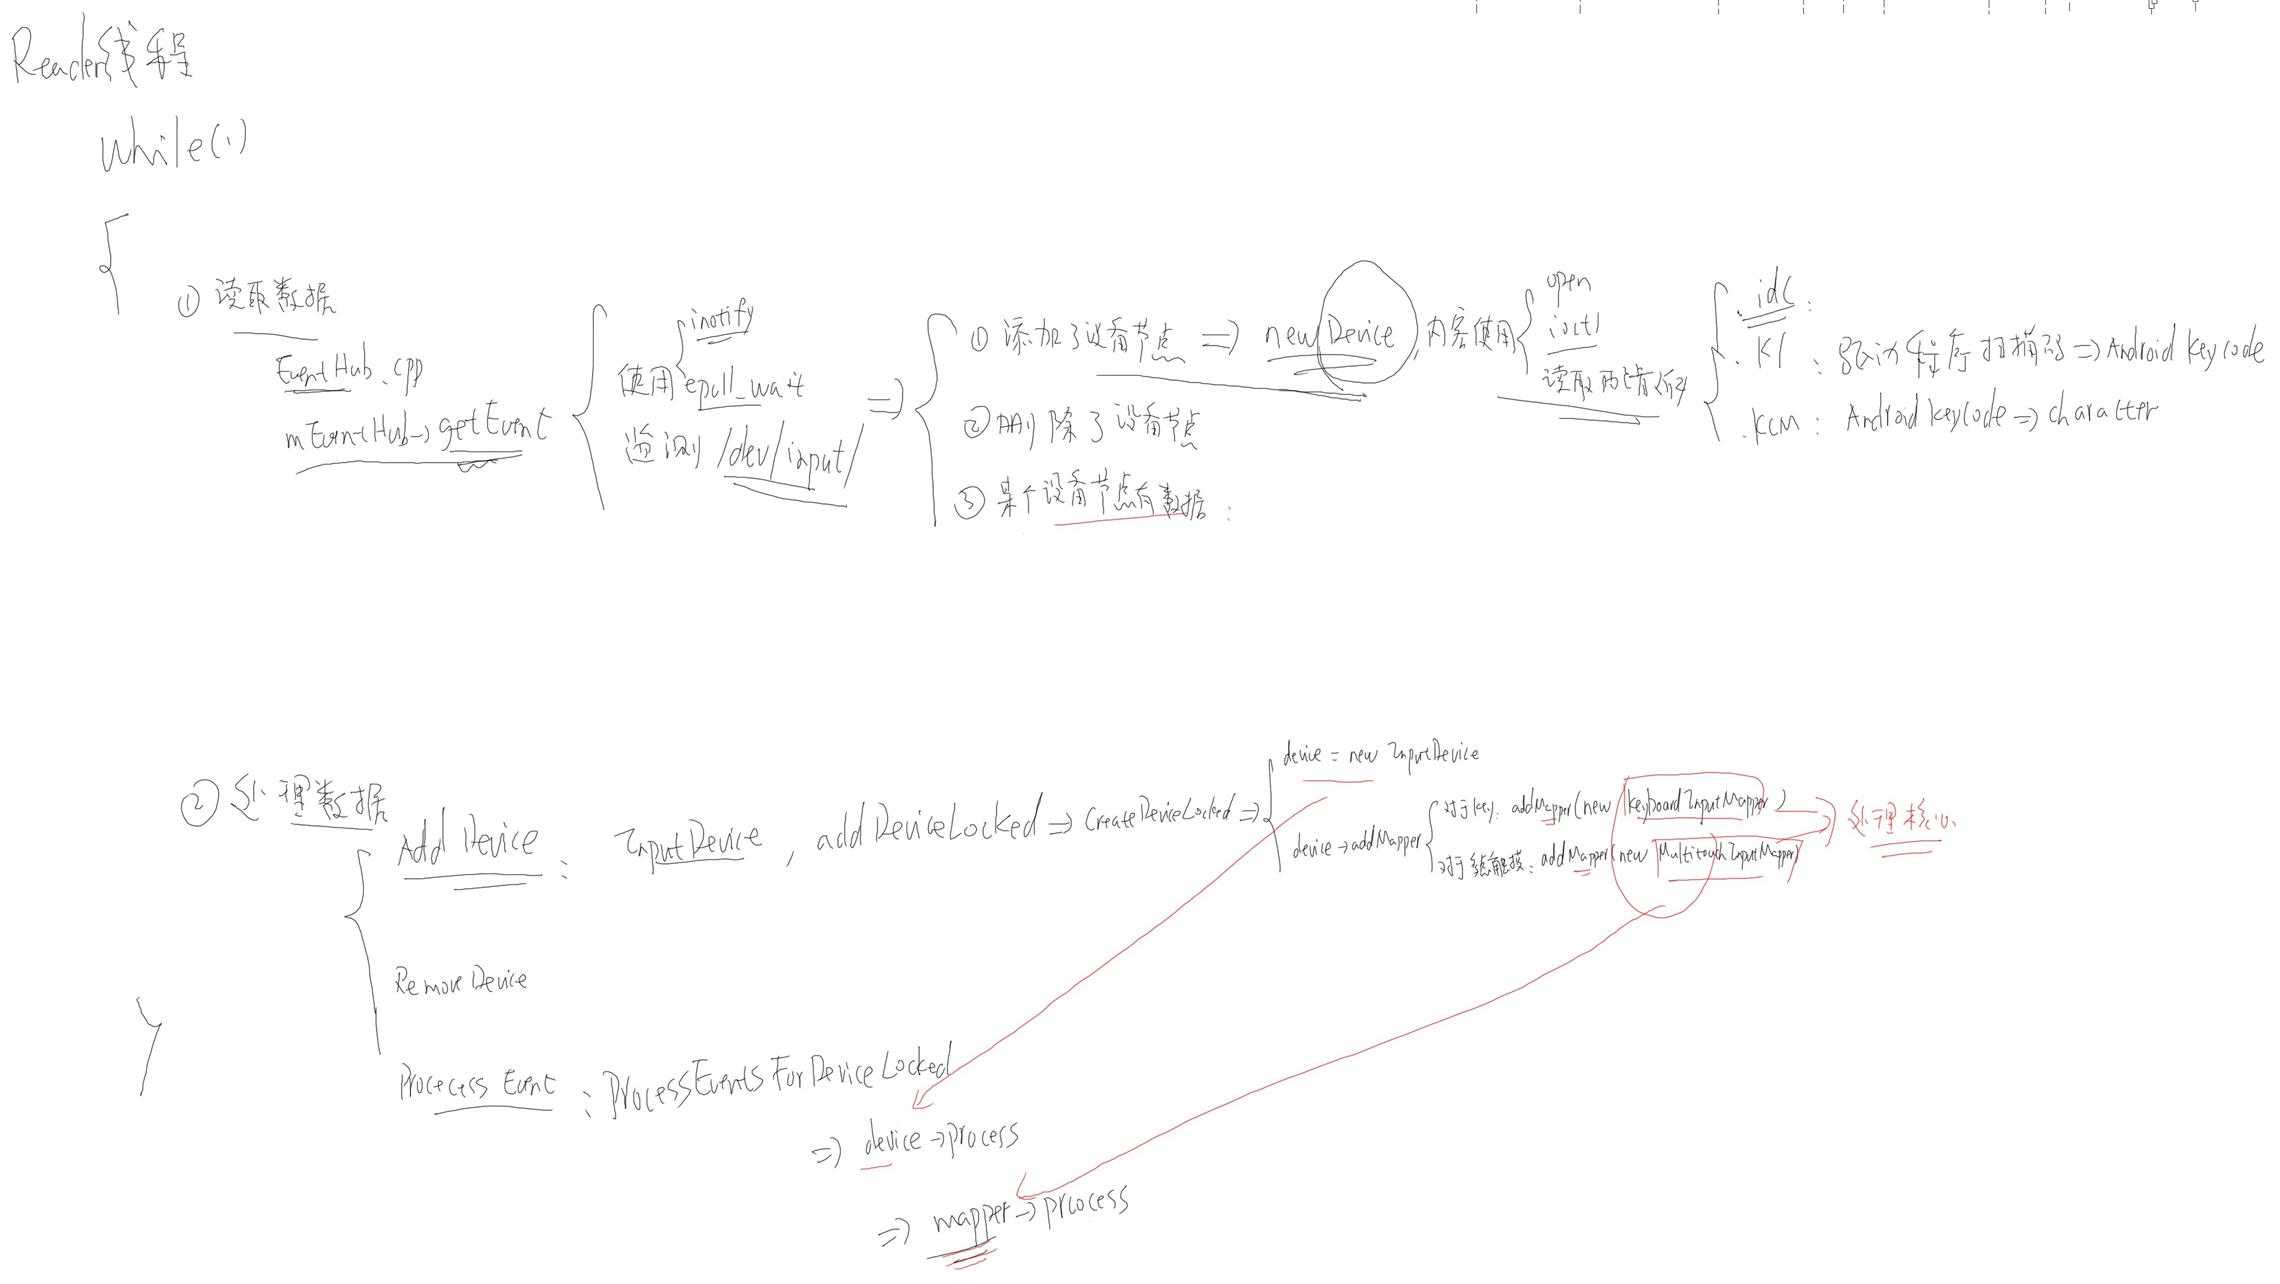 Reader线程
while(1)
{
① 读取数据
EventHub.cpp
mEventHub->getEvent
使用 { inotify
epoll_wait
监测 /dev/input/
=>
① 添加了设备节点 => new Device, 内容使用
② 删除了设备节点
③ 某个设备节点有数据:
open
ioctl
读取配置信息
.idc:
.Kl : 驱动程序扫描码 => Android keycode
.KCM: Android keycode => character
② 处理数据
Add Device: InputDevice, addDeviceLocked => CreateDeviceLocked =>
device = new InputDevice
device->addMapper
对于key: addMapper(new KeyboardInputMapper)
addMapper(new MultitouchInputMapper)
处理核心
Remove Device
Procecess Event : ProcessEventsForDeviceLocked
=> device->process
=> mapper->process
}